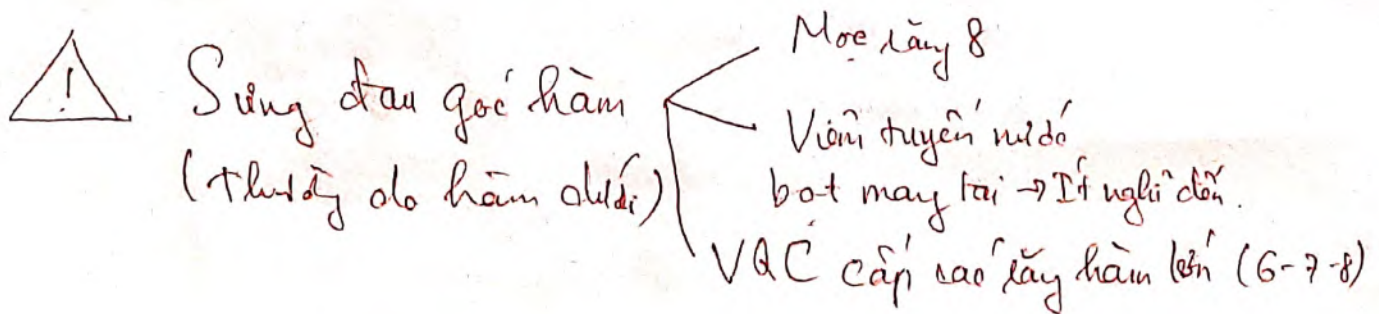 !
Sưng đau góc hàm
(Thường do hàm dưới)
Mọc răng 8
Viêm tuyến nước
bọt mang tai → Ít nghĩ đến.
VQC cấp các răng hàm lớn (6-7-8)